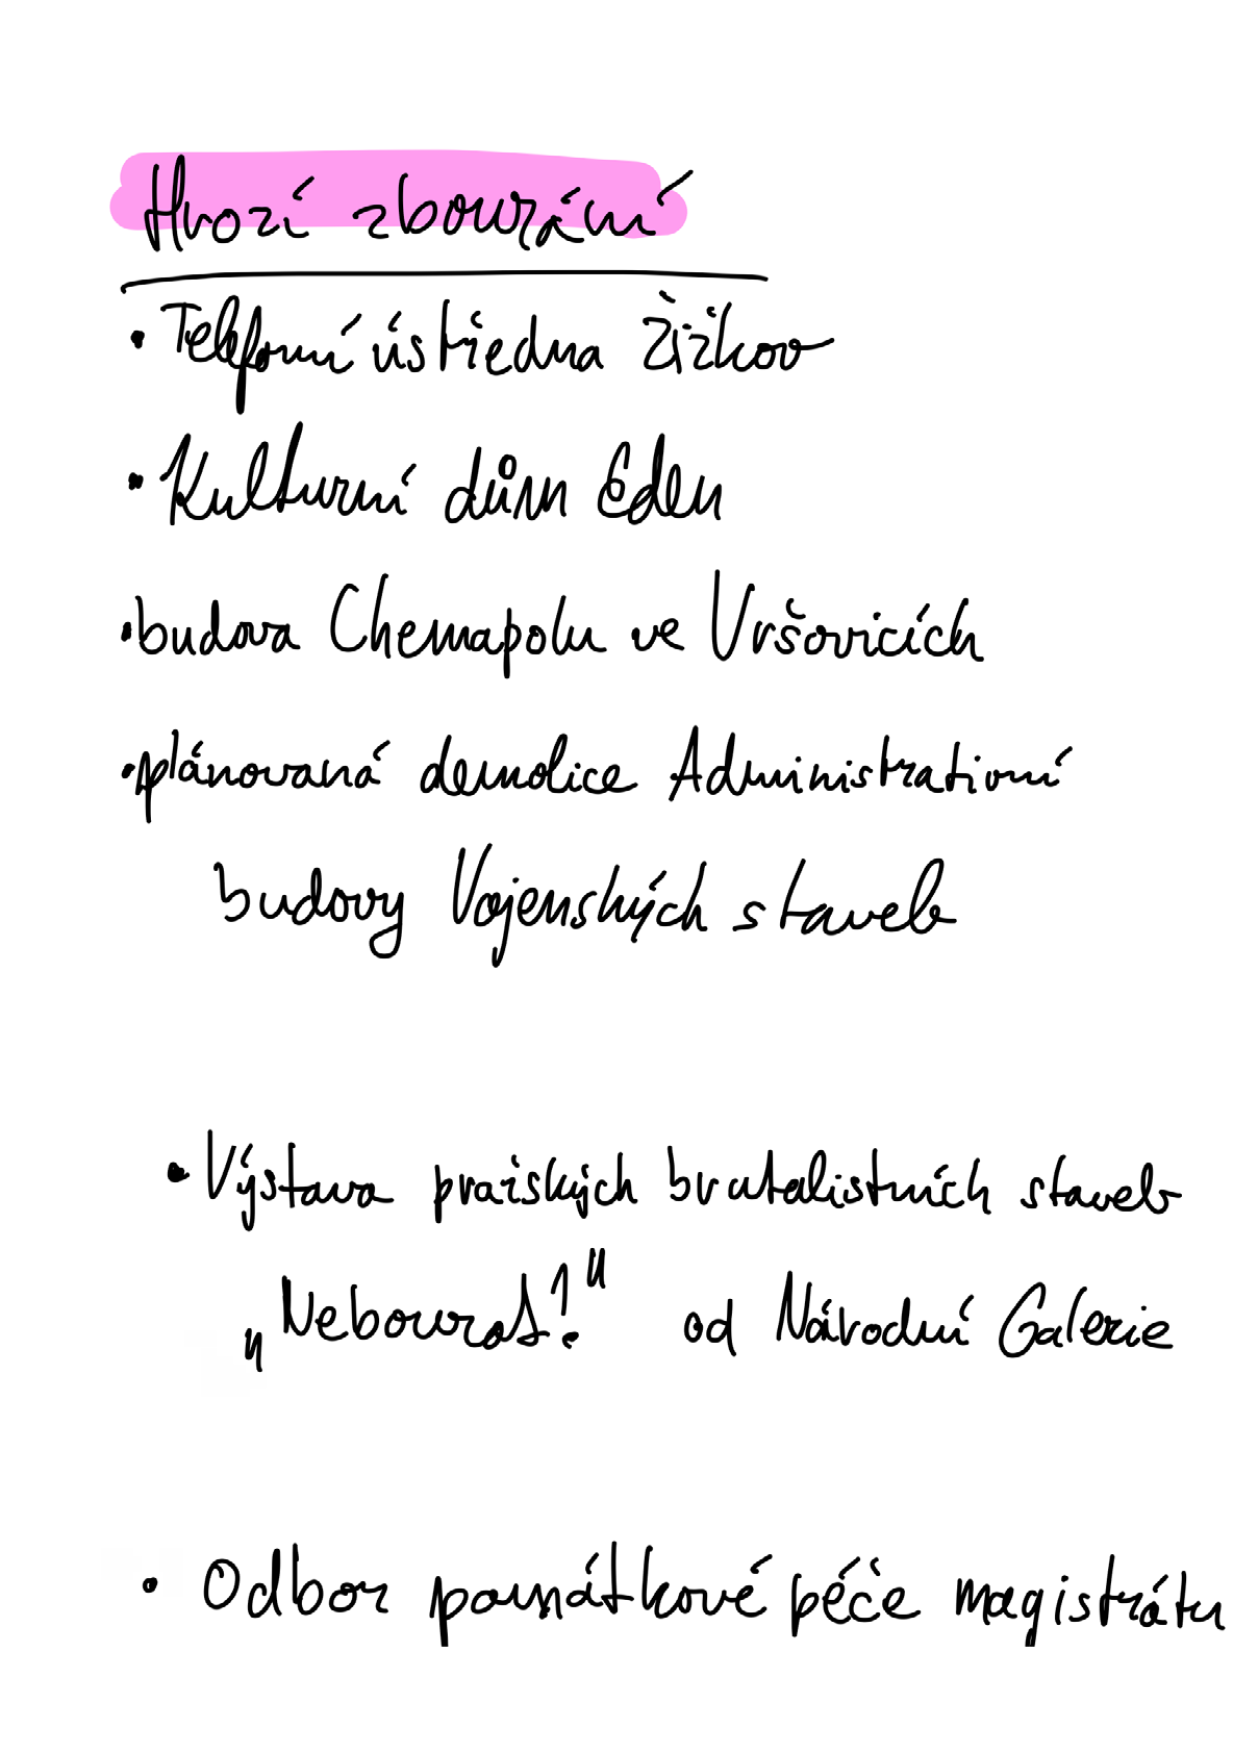 Hrozí zbourání
• Telefonní ústředna Žižkov
• Kulturní dům Eden
• budova Chemapolu ve Vršovicích
• plánovaná demolice Administrativní
budovy Vojenských staveb
• Výstava pražských brutalistních staveb
„Nebourat!" od Národní Galerie
• Odbor památkové péče magistrátu